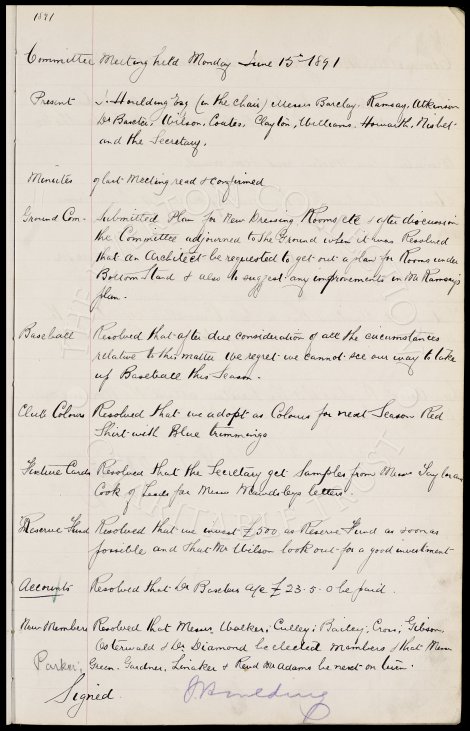 1891
Committee Meeting held Monday June 15th 1891
Present J. Houlding Esq (in the chair) Messrs Barclay. Ramsay, Atkinson
Dr Baxter, Wilson, Coates, Clayton, Williams, Howarth, Nisbet
and the Secretary.
Minutes of last Meeting read & confirmed
Ground Com. Submitted Plan for New Dressing Rooms etc & after discussion
the Committee adjourned to the Ground when it was Resolved
that an Architect be requested to get out a plan for Rooms under
Bottom Stand & also to suggest any improvements in Mr Ramsay's
plan.
Baseball Resolved that after due consideration of all the circumstances
relative to this matter we regret we cannot see our way to take
up Baseball this Season.
Club Colours Resolved that we adopt as Colours for next Season Red
Shirt with Blue trimmings
Fixture Cards Resolved that the Secretary get Samples from Messrs Taylor and
Cook of Leeds for Messrs Mawdsleys letters.
Reserve Fund Resolved that we invest £500 as Reserve Fund as soon as
possible and that Mr Wilson look out for a good investment
Accounts Resolved that Dr Baxters a/c £23.5.0 be paid.
New Members Resolved that Messrs Walker; Culley; Bailey, Cross; Gibson,
Osterwald & Dr Diamond be elected members & that Messrs
Parker, Green. Gardner, Linaker & Revd Mr Adams be next on turn.
Signed. J Houlding